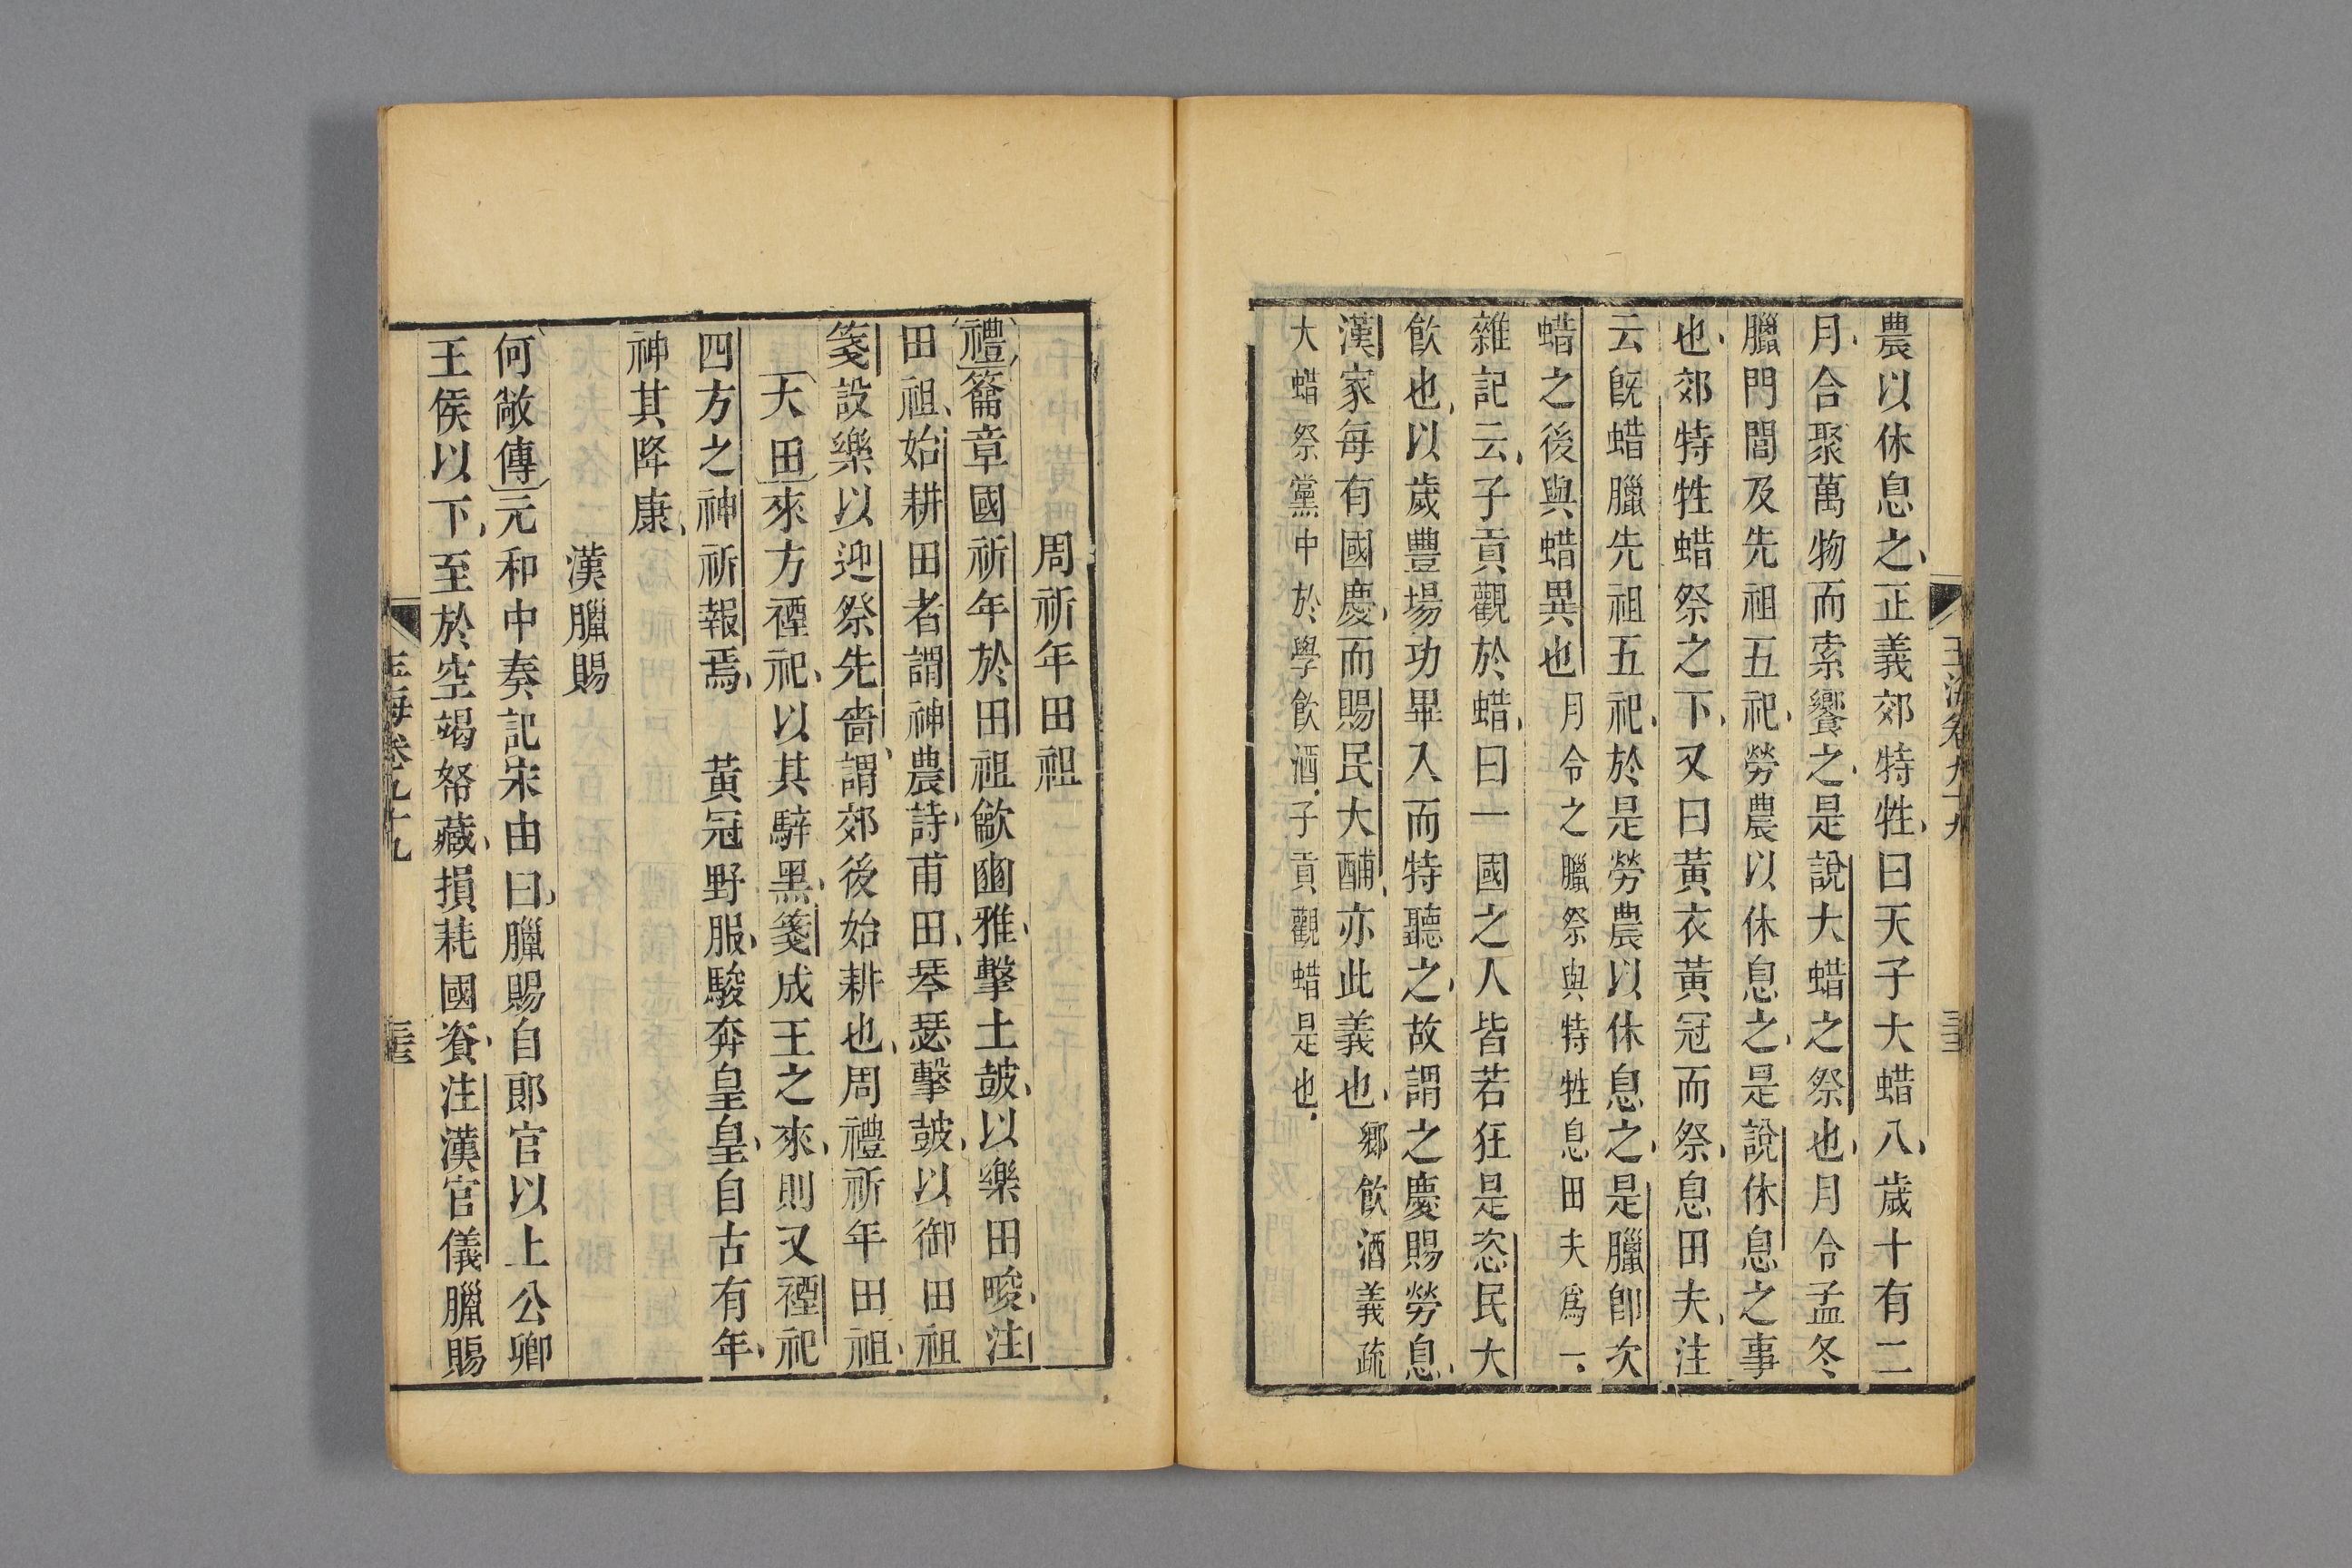 農以休息之正義郊特牲曰天子大蜡八歲十有二
月合聚萬物而索饗之是說大蜡之祭也月令孟冬
臘門閭及先祖五祀勞農以休息之是說休息之事
也郊特牲蜡祭之下又曰黃衣黃冠而祭息田夫注
云旣蜡臘先祖五祀於是勞農以休息之是臘卽次
蜡之後與蜡異也月令之臘祭與特牲息田夫爲一
雜記云子貢觀於蜡曰一國之人皆若狂是恣民大
飮也以歲豐場功畢入而特聽之故謂之慶賜勞息
漢家每有國慶而賜民大酺亦此義也鄉飮酒義疏
大蜡祭黨中於學飮酒子貢觀蜡是也
玉海卷九十九
周祈年田祖
禮籥章國祈年於田祖龡豳雅擊土鼓以樂田畯注
田祖始耕田者謂神農詩甫田琴瑟擊鼓以御田祖
箋設樂以迎祭先嗇謂郊後始耕也周禮祈年田祖
大田來方禋祀以其騂黑箋成王之來則又禋祀
四方之神祈報焉 黃冠野服駿奔皇皇自古有年
神其降康
漢臘賜
何敞傳元和中奏記宋由曰臘賜自郎官以上公卿
王侯以下至於空竭帑藏損耗國資注漢官儀臘賜
玉海卷九十九